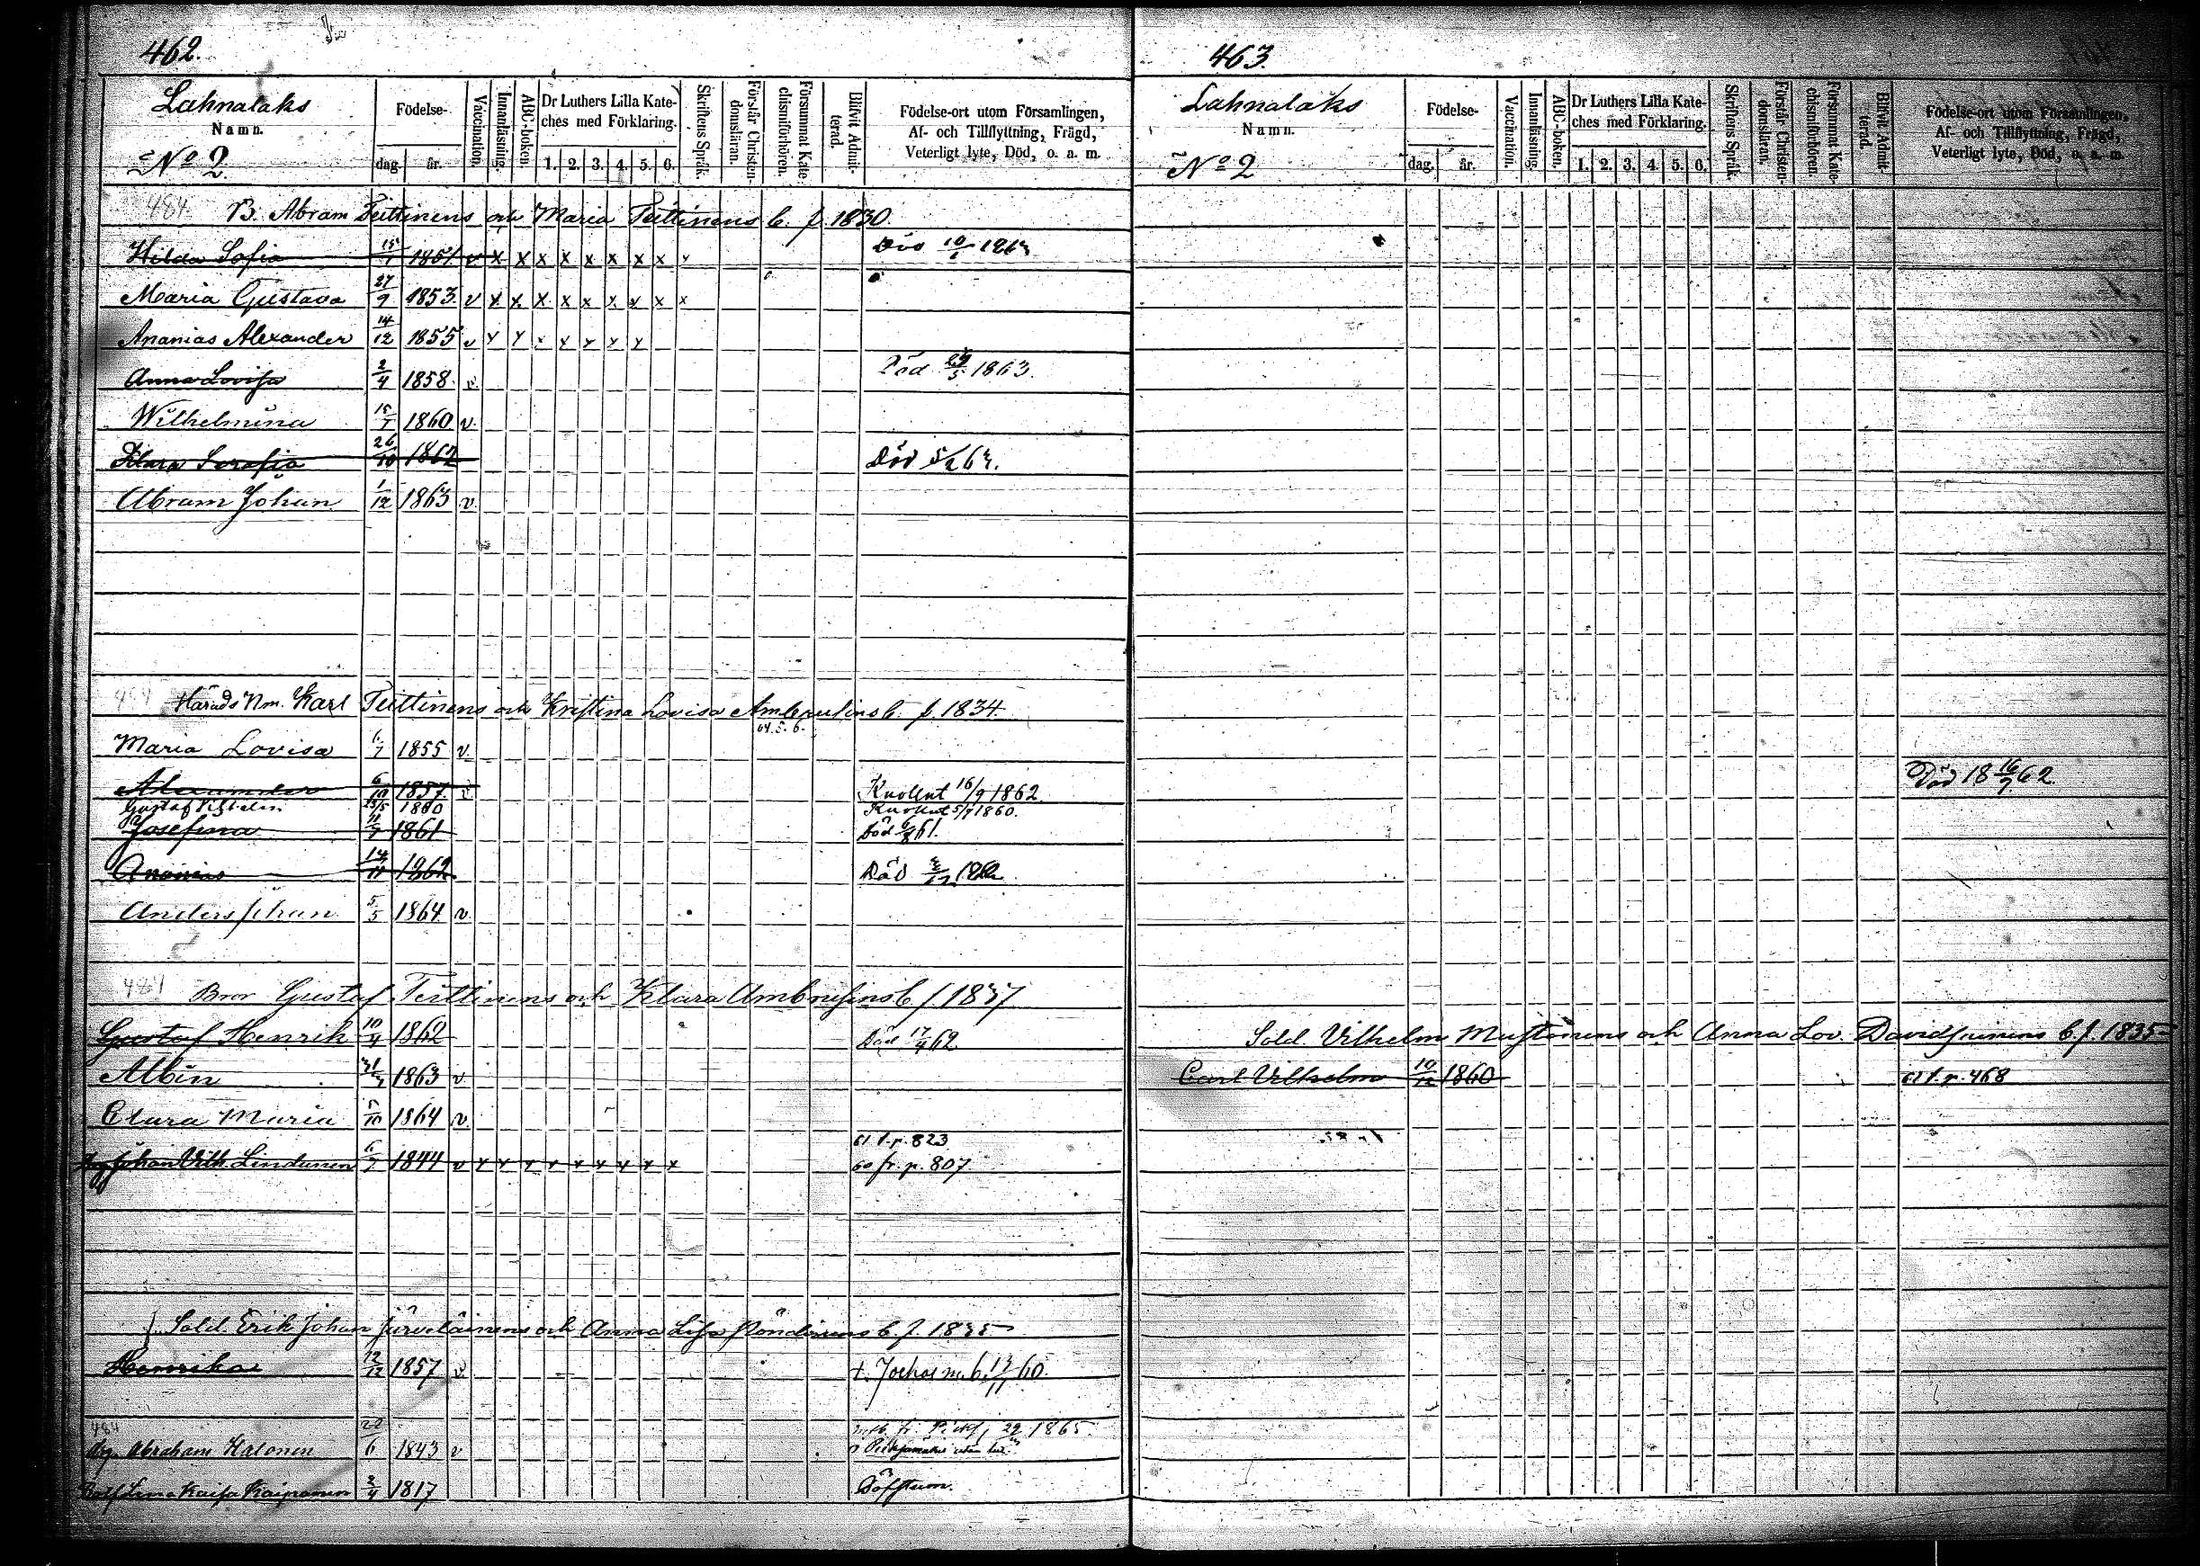 462.
Lahnalaks
Namn.
No 2.
Födelse-
dag
år.
Vaccination.
Innanläsning.
ABC-boken.
Dr Luthers Lilla Kate-
ches med Förklaring.
1. 2. 3. 4. 5. 6.
Skriftens Språk.
Förstår Christen-
domsläran.
Försummat Kate-
chismiförhören.
Blifvit Admit-
terad.
Födelse-ort utom Församlingen,
Af- och Tillflyttning, Frägd,
Veterligt lyte, Död, o. a. m.
484. B. Abram Teittinens och Maria Teittinens b. f. 1830
Hilda Sofia 1851 v x x x x x x x x
Maria Gustava 27/9 1853 v x x x x x x x x x
Ananias Alexander 14/12 1855 v x x x x x x x
Anna Lovisa 2/4 1858 v Död 1863.
Wilhelmina 1860 v.
Serafia 26/10 1862 Död
Abram Johan 1/12 1863 v.
Härads Nm. Karl Teittinens och Kristina Lovisa b. f. 1834.
64. 5. 6.
Maria Lovisa 1855 v.
6/10 1857 v 16/9 1862
Gustaf 1860 5/9 1860.
Josefina 11/7 1861 Död 61.
Ananias 14/11 1862 Död
Anders Johan 5/5 1864 v.
484 Bror Gustaf Teittinens och Klara b. f 1837
Gustaf Henrik 10/4 1862 Död 17/9 62.
Albin 1863 v.
Clara Maria 5/10 1864 v.
61 t. p. 823
Johan Vilh. Lindunen 6/7 1844 v x x x x x x x x x 60 fr. p. 807
Sold. Erik Johan och Anna Lisa b. f. 1835
Henrika 12/12 1857 v
484
Abraham Halonen 20/6 1843 v 1865
Lena Kaisa 2/4 1817 Döfstum.
463.
Lahnalaks
Namn.
No 2
Födelse-
dag.
år.
Vaccination.
Innanläsning.
ABC-boken.
Dr Luthers Lilla Kate-
ches med Förklaring.
1. 2. 3. 4. 5. 6.
Skriftens Språk.
Förstår Christen-
domsläran.
Försummat Kate-
chismiförhören.
Blifvit Admit-
terad.
Födelse-ort utom Församlingen,
Af- och Tillflyttning, Frägd,
Veterligt lyte, Död, o. a. m.
Död 18 16/9 62
Sold. Vilhelm Mustonens och Anna Lov. b. f. 1835
Carl Vilhelm 10/12 1860 61 t. p. 468